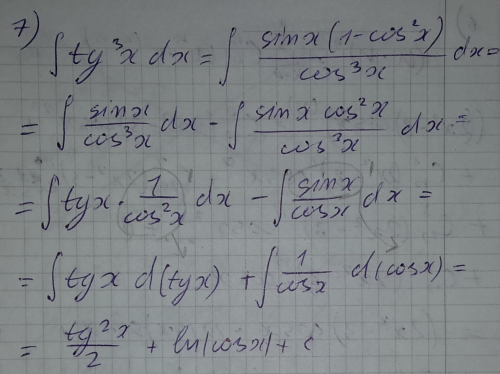 7)
∫ tg³x dx = ∫ sinx(1-cos²x)/cos³x dx =
= ∫ sinx/cos³x dx - ∫ sinx cos²x/cos³x dx =
= ∫ tgx · 1/cos²x dx - ∫ sinx/cosx dx =
= ∫ tgx d(tgx) + ∫ 1/cosx d(cosx) =
= tg²x/2 + ln|cosx| + c